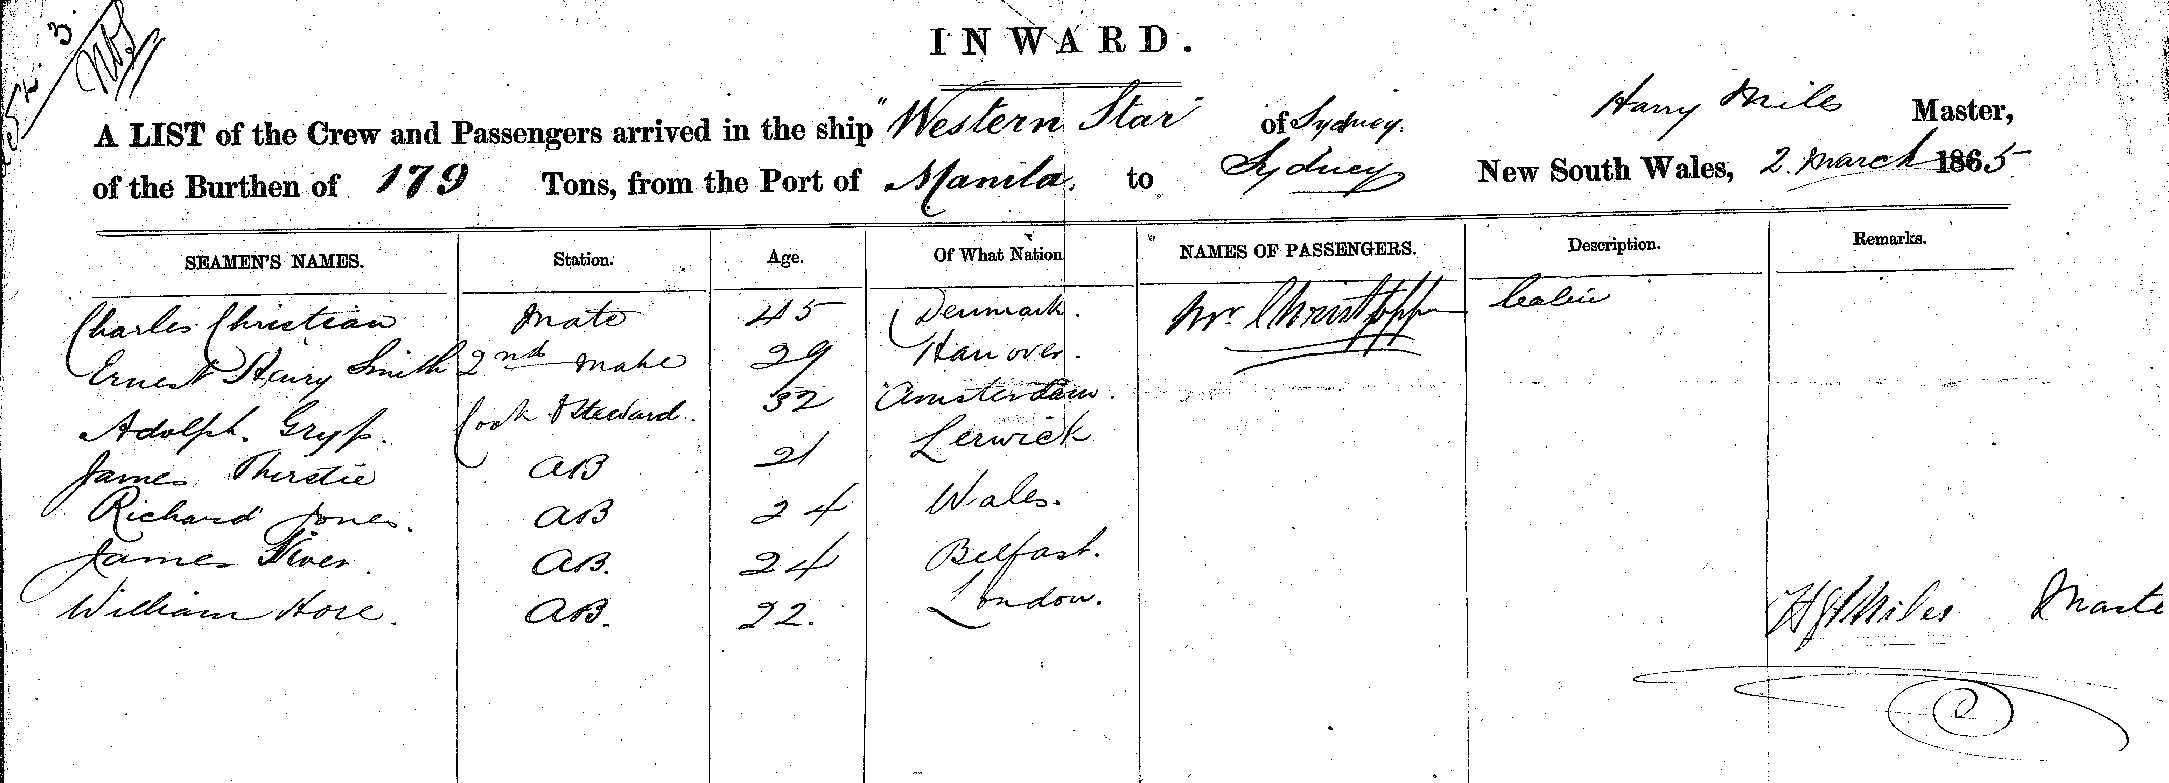 INWARD.
A LIST of the Crew and Passengers arrived in the ship "Western Star" of Sydney. Harry Miles Master,
of the Burthen of 179 Tons, from the Port of Manila. to Sydney New South Wales, 2. March 1865
SEAMEN'S NAMES. Station. Age. Of What Nation NAMES OF PASSENGERS. Description. Remarks.
Charles Christian Mate 45 Denmark. Mr Cabin
Ernest Henry Smith 2nd Mate 29 Hanover.
Adolph. Gryp. Cook & Steward. 32 Amsterdam.
James Thirstie AB 21 Lerwick
Richard Jones. AB 24 Wales.
James AB. 24 Belfast.
William Hore. AB. 22. London.
H J Miles Maste